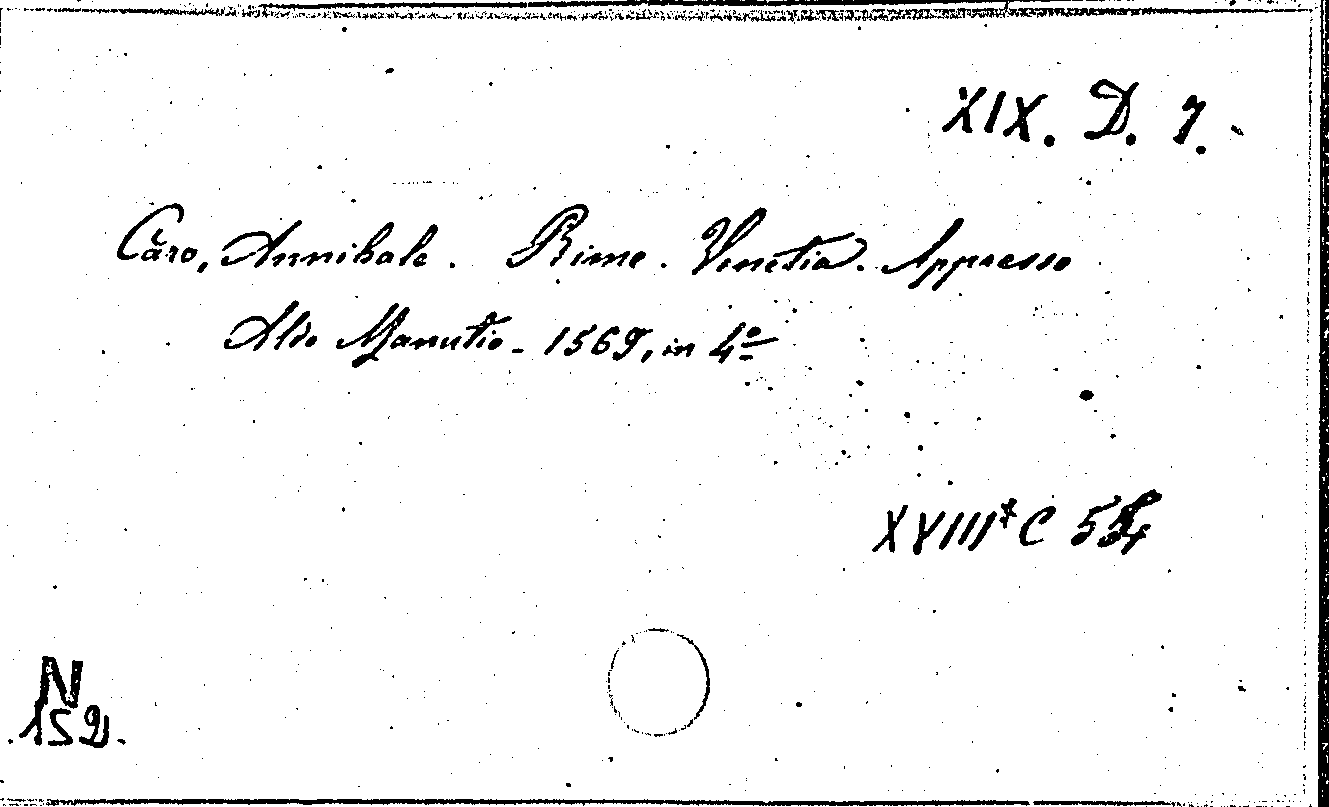 XIX. D. 7.
Caro, Annibale. Rime. Venetia. Appresso
Aldo Manutio - 1569, in 4º
XVIII* C 554
N
152.